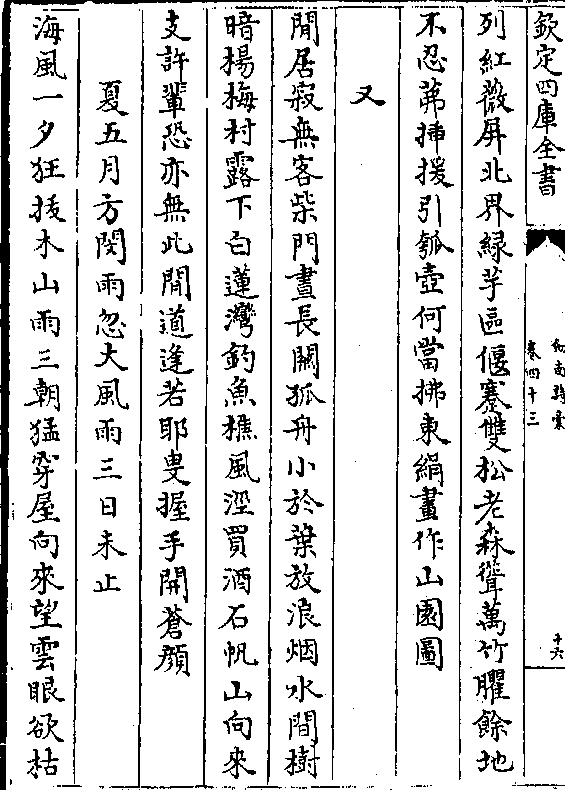 欽定四庫全書
劍南詩稾
卷四十三
十六
列紅薇屏北界緑芋區偃蹇雙松老森聳萬竹臞餘地
不忍苐揷援引瓠壺何當拂東絹畫作山園圖
又
閒居寂無客柴門晝長關孤舟小於葉放浪烟水間樹
暗楊梅村露下白蓮灣釣魚樵風涇買酒石帆山向來
支許輩恐亦無此閒道逢若耶叟握手開蒼顔
夏五月方閔雨忽大風雨三日未止
海風一夕狂拔木山雨三朝猛穿屋向來望雲眼欲枯